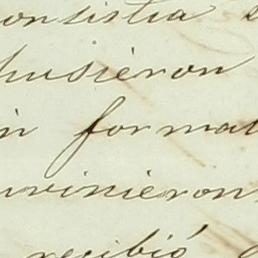 onsistia
husieron
in formal
uvinieron
recibió